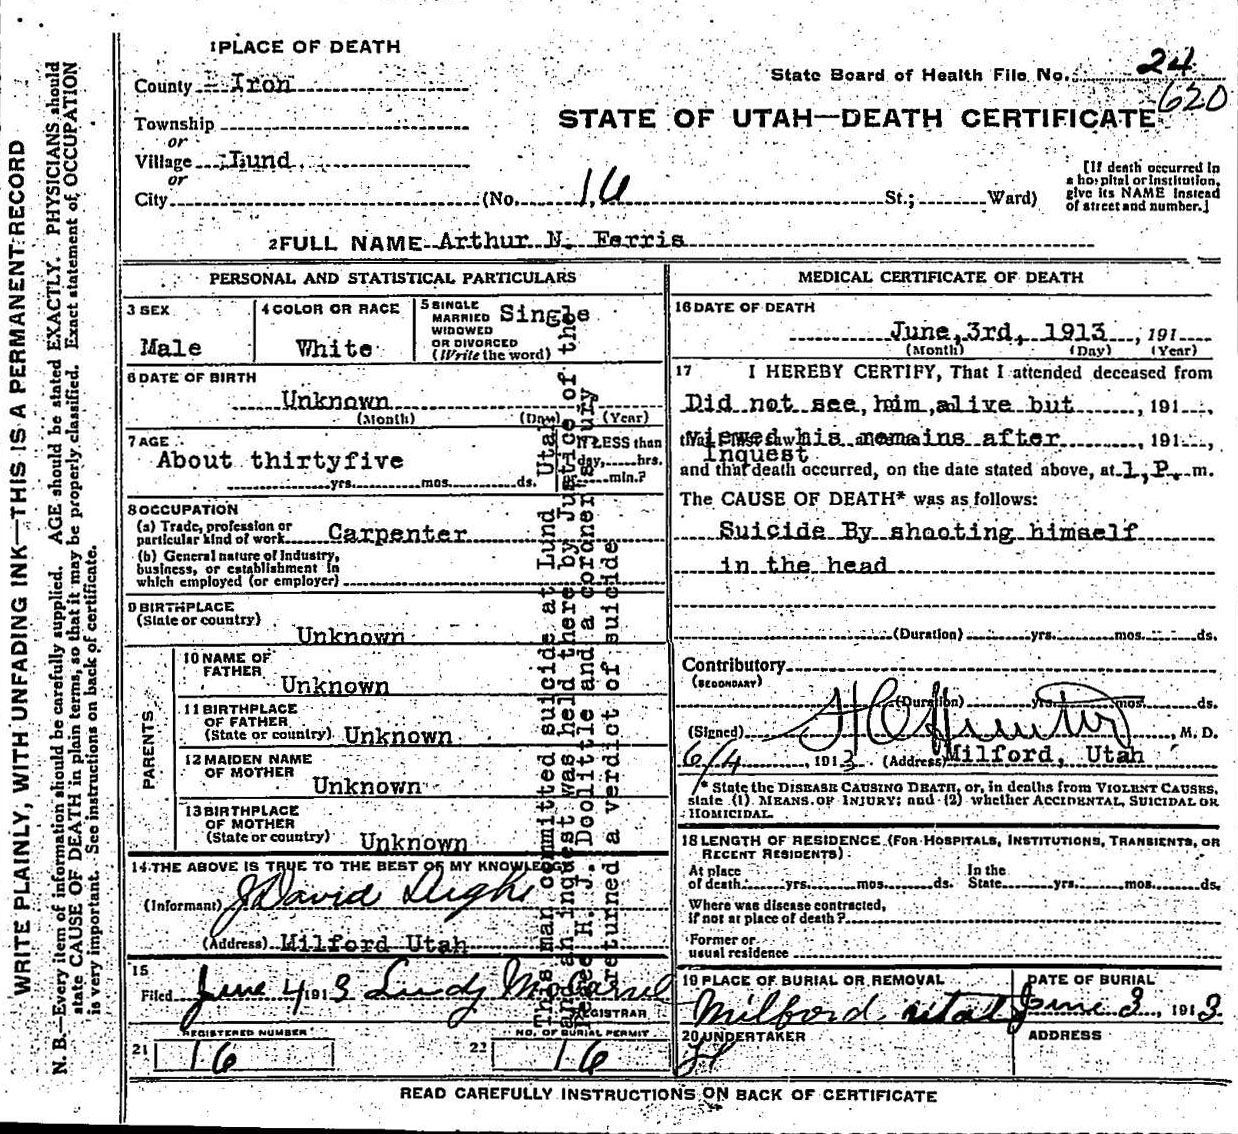 1 PLACE OF DEATH
County Iron
Township
or
Village Lund
or
City (No. 16 St.; Ward)
State Board of Health File No. 24
620
STATE OF UTAH—DEATH CERTIFICATE
[If death occurred in
a hospital or institution,
give its NAME instead
of street and number.]
2 FULL NAME Arthur N. Ferris
PERSONAL AND STATISTICAL PARTICULARS
3 SEX
Male
4 COLOR OR RACE
White
5 SINGLE
MARRIED
WIDOWED
OR DIVORCED
(Write the word)
Single
6 DATE OF BIRTH
Unknown
(Month) (Day) (Year)
7 AGE
About thirtyfive
yrs. mos. ds.
If LESS than
day, hrs.
min.?
8 OCCUPATION
(a) Trade, profession or
particular kind of work Carpenter
(b) General nature of Industry,
business, or establishment in
which employed (or employer)
9 BIRTHPLACE
(State or country)
Unknown
PARENTS
10 NAME OF
FATHER
Unknown
11 BIRTHPLACE
OF FATHER
(State or country) Unknown
12 MAIDEN NAME
OF MOTHER
Unknown
13 BIRTHPLACE
OF MOTHER
(State or country) Unknown
14 THE ABOVE IS TRUE TO THE BEST OF MY KNOWLEDGE
(Informant) J David
(Address) Milford Utah
15
Filed June 4 1913
REGISTRAR
REGISTERED NUMBER
21 16
NO. OF BURIAL PERMIT
22 16
This man committed suicide at Lund Utah
and an inquest was held there by Justice of the
Peace H. J. Doolittle and a coroners jury
returned a verdict of suicide
MEDICAL CERTIFICATE OF DEATH
16 DATE OF DEATH
June, 3rd, 1913, 191
(Month) (Day) (Year)
17 I HEREBY CERTIFY, That I attended deceased from
Did not see, him, alive but, 191,
Viewed his remains after, 191,
Inquest
and that death occurred, on the date stated above, at 1, P. m.
The CAUSE OF DEATH* was as follows:
Suicide By shooting himself
in the head
(Duration) yrs. mos. ds.
Contributory
(SECONDARY)
(Duration) yrs. mos. ds.
(Signed) , M. D.
6/4, 1913 (Address) Milford, Utah
* State the DISEASE CAUSING DEATH, or, in deaths from VIOLENT CAUSES,
state (1) MEANS OF INJURY; and (2) whether ACCIDENTAL, SUICIDAL OR
HOMICIDAL.
18 LENGTH OF RESIDENCE (FOR HOSPITALS, INSTITUTIONS, TRANSIENTS, OR
RECENT RESIDENTS)
At place
of death yrs. mos. ds.
In the
State yrs. mos. ds.
Where was disease contracted,
if not at place of death?
Former or
usual residence
19 PLACE OF BURIAL OR REMOVAL
Milford, utah
DATE OF BURIAL
June 3, 1913
20 UNDERTAKER
ADDRESS
READ CAREFULLY INSTRUCTIONS ON BACK OF CERTIFICATE
WRITE PLAINLY, WITH UNFADING INK—THIS IS A PERMANENT RECORD
N. B.—Every item of information should be carefully supplied. AGE should be stated EXACTLY. PHYSICIANS should
state CAUSE OF DEATH in plain terms, so that it may be properly classified. Exact statement of OCCUPATION
is very important. See instructions on back of certificate.